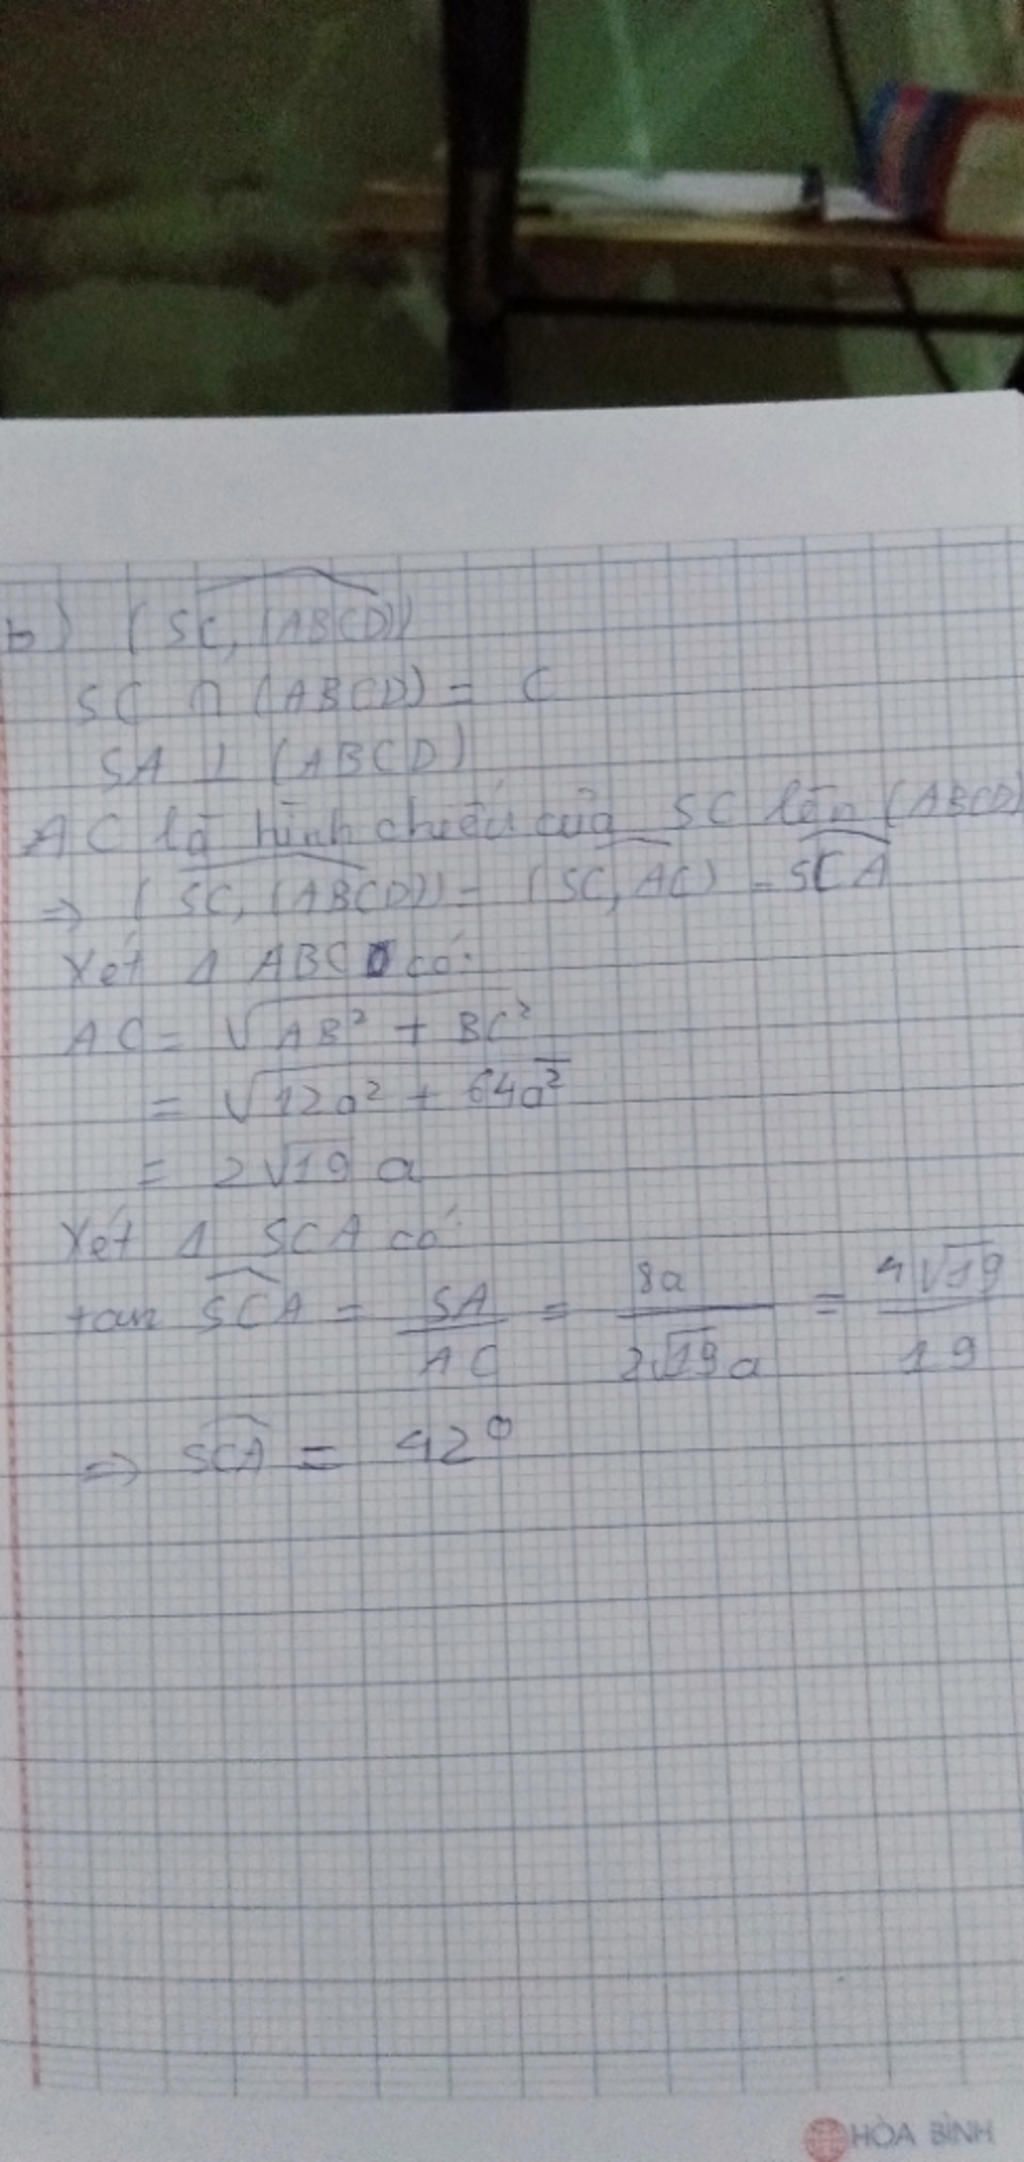 b) (SC, (ABCD))
SC ∩ (ABCD) = C
SA ⊥ (ABCD)
AC là hình chiếu của SC lên (ABCD)
=> (SC, (ABCD)) = (SC, AC) = SCA
Xét Δ ABC có:
AC = √AB² + BC²
= √12a² + 64a²
= 2√19 a
Xét Δ SCA có:
tan SCA = SA/AC = 8a/2√19a = 4√19/19
=> SCA = 42°
HÒA BÌNH